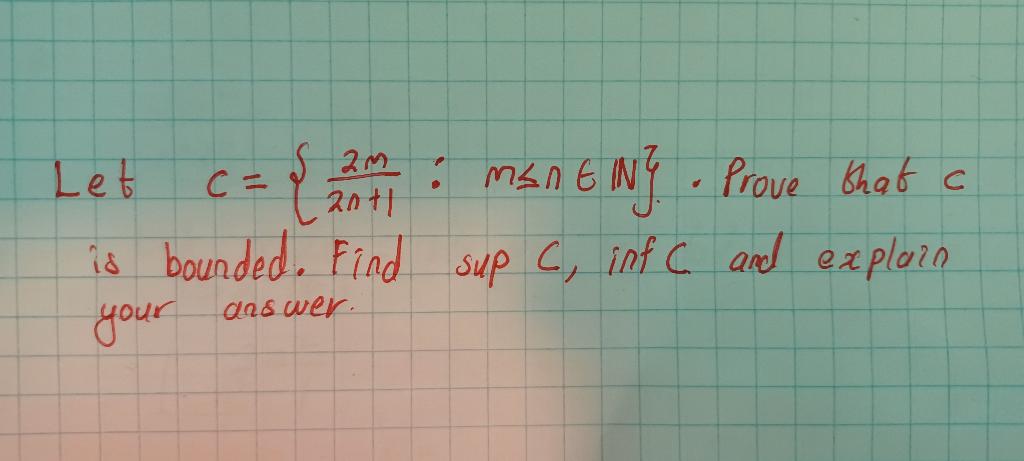 Let c = { 2m/2n+1 : m≤n ∈ ℕ}. Prove that c
is bounded. Find sup C, inf C and explain
your answer.